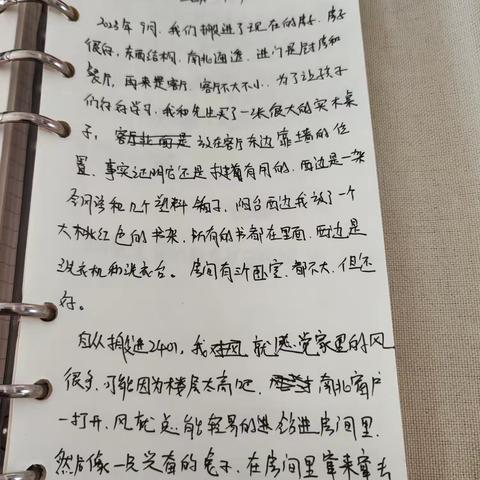 2023年9月,我们搬进了现在的房子,房子
很好,东西结构,南北通透,进门是厨房和
餐厅,再来是客厅,客厅不大不小,为了让孩子
们好好学习,我和先生买了一张很大的实木桌
子,客厅北面是放在客厅东边靠墙的位
置,事实证明它还是挺有用的,西边是一架
和几个塑料箱子,阳台西边我放了一个
大桃红色的书架,所有的书都在里面,西边是
洗衣机和洗衣台。房间有三个卧室,都不大,但还
好。
自从搬进2401,我就感觉家里的风
很多,可能因为楼层太高吧,南北窗户
一打开,风就总能轻易的进钻进房间里,
然后像一只兴奋的兔子,在房间里窜来窜去